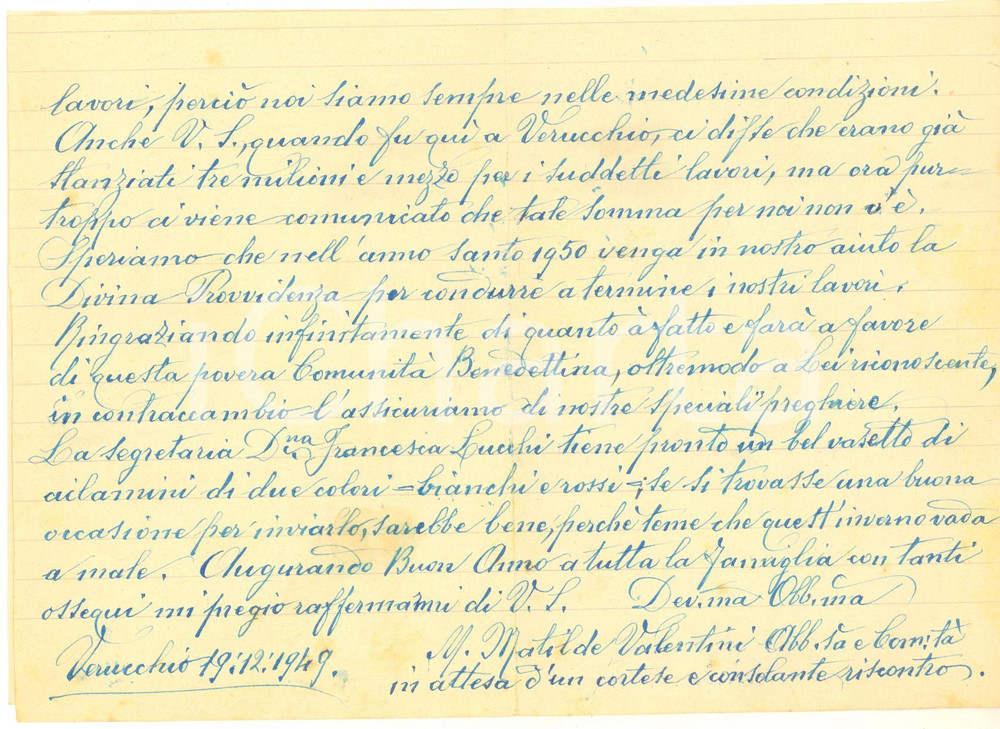 lavori, perciò noi siamo sempre nelle medesime condizioni.
Anche V. S., quando fu quì a Verucchio, ci disse che erano già
stanziati tre milioni e mezzo per i suddetti lavori, ma ora pur=
troppo ci viene comunicato che tale somma per noi non v'è.
Speriamo che nell'anno santo 1950 venga in nostro aiuto la
Divina Provvidenza per condurre a termine i nostri lavori.
Ringraziando infinitamente di quanto à fatto e farà a favore
di questa povera Comunità Benedettina, oltremodo a Lei riconoscente,
in contraccambio l'assicuriamo di nostre speciali preghiere.
La segretaria Dna Francesca Lucchi tiene pronto un bel vasetto di
ciclamini di due colori =bianchi e rossi=; se si trovasse una buona
occasione per inviarlo, sarebbe bene, perchè teme che quest'inverno vada
a male. Augurando Buon Anno a tutta la famiglia con tanti
ossequi mi pregio raffermarmi di V. S. Dev.ma Obb.ma
M. Matilde Valentini Abb.sa e Com.tà
Verucchio 19:12:1949.
in attesa d'un cortese e consolante riscontro.